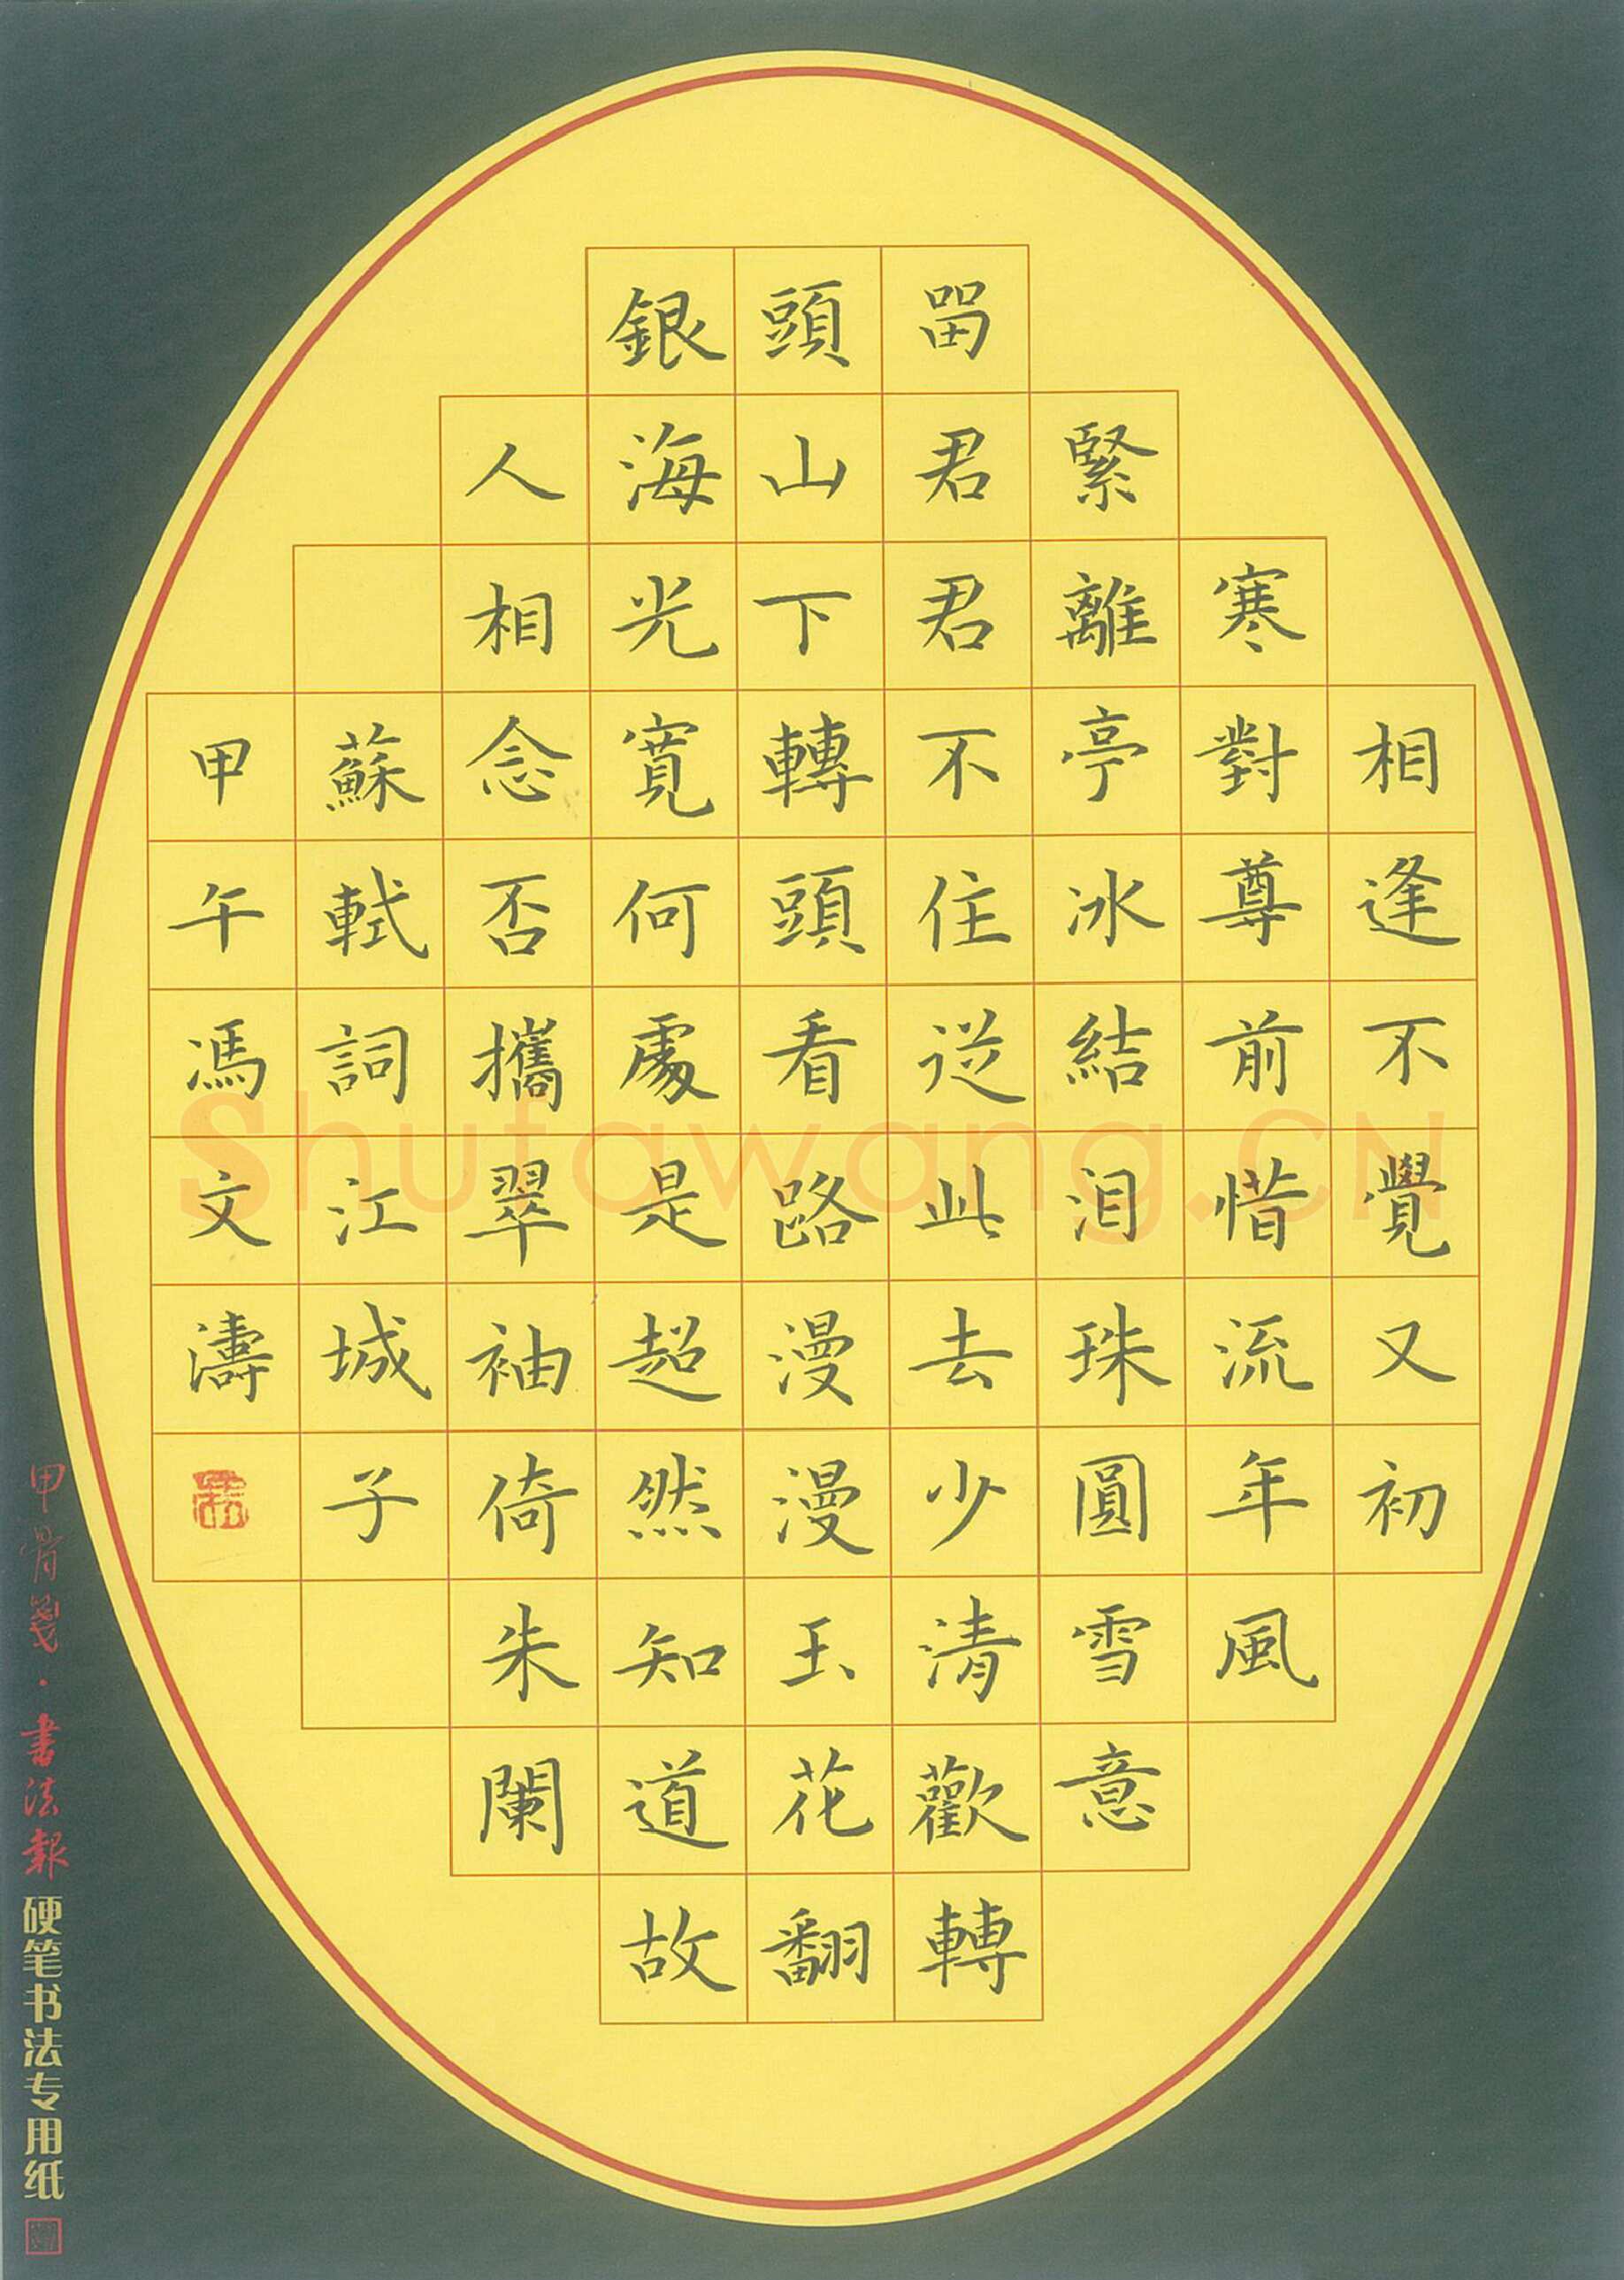 相逢不覺又初
寒對尊前惜流年風
緊離亭冰結泪珠圓雪意
留君君不住從此去少清歡轉
頭山下轉頭看路漫漫玉花翻
銀海光寬何處是超然知道故
人相念否攜翠袖倚朱闌
蘇軾詞江城子
甲午馮文濤
甲骨箋·書法報硬笔书法专用纸
Shufawang.CN